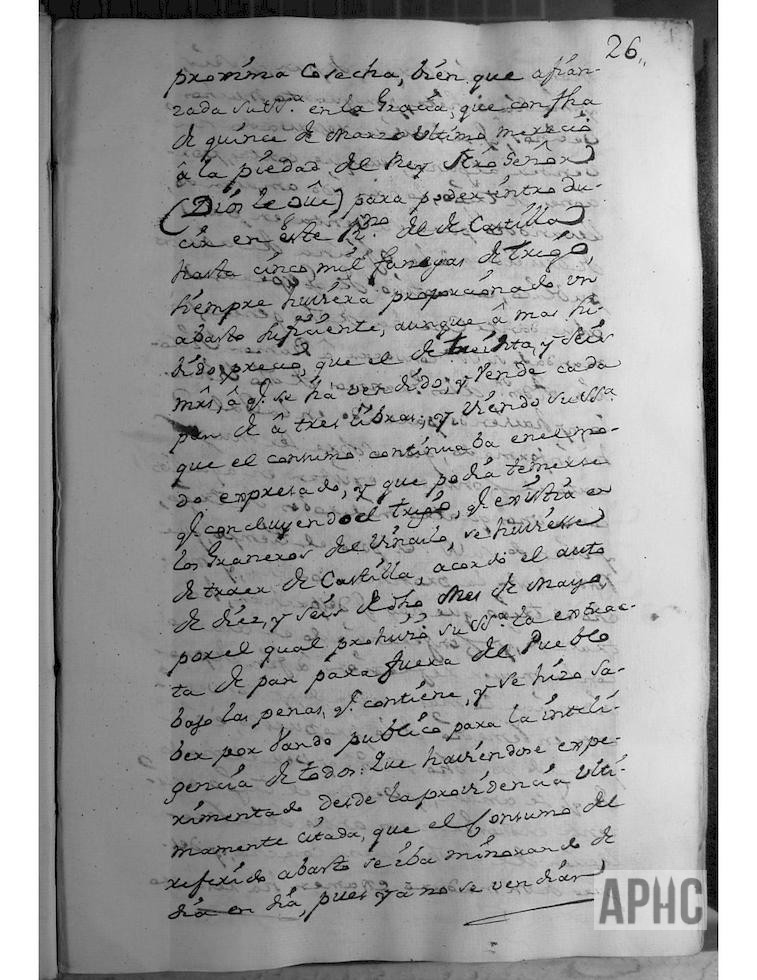 26,,
proxima Cosecha, bien que afian-
zada su Sª. en la Gracia, que con fha
de quince de Marzo ultimo merecio
â la piedad del Rey Ntro Señor
(Dios le Gûe) para poder introdu-
cir en este Rno. del de Castilla
hasta cinco mil fanegas de trigo
siempre huviera proporcionado un
abasto suficiente, aunque â mas su-
bido precio, que el de treinta, y seis
mrs, â q. se há vendido, y vende cada
pan de â tres libras; y viendo su Sª.
que el consumo continuaba en el mo-
do expresado, y que podia temerse
q. concluyendo el trigo, q. existia en
los Graneros de Vinaio, se huviesse
de traer de Castilla, acordó el auto
de diez, y seis de dho Mes de Mayo,
por el qual prohivió su Sª. la extrac-
ta de pan para fuera del Pueblo
bajo las penas, q. contiene, y se hizo sa-
ber por bando publico para la inteli-
gencia de todos: Que haviendose expe-
rimentado desde la providencia ulti-
mamente citada, que el Consumo del
referido abasto se iba minorando de
dia en dia, pues ya no se vendian
APHC